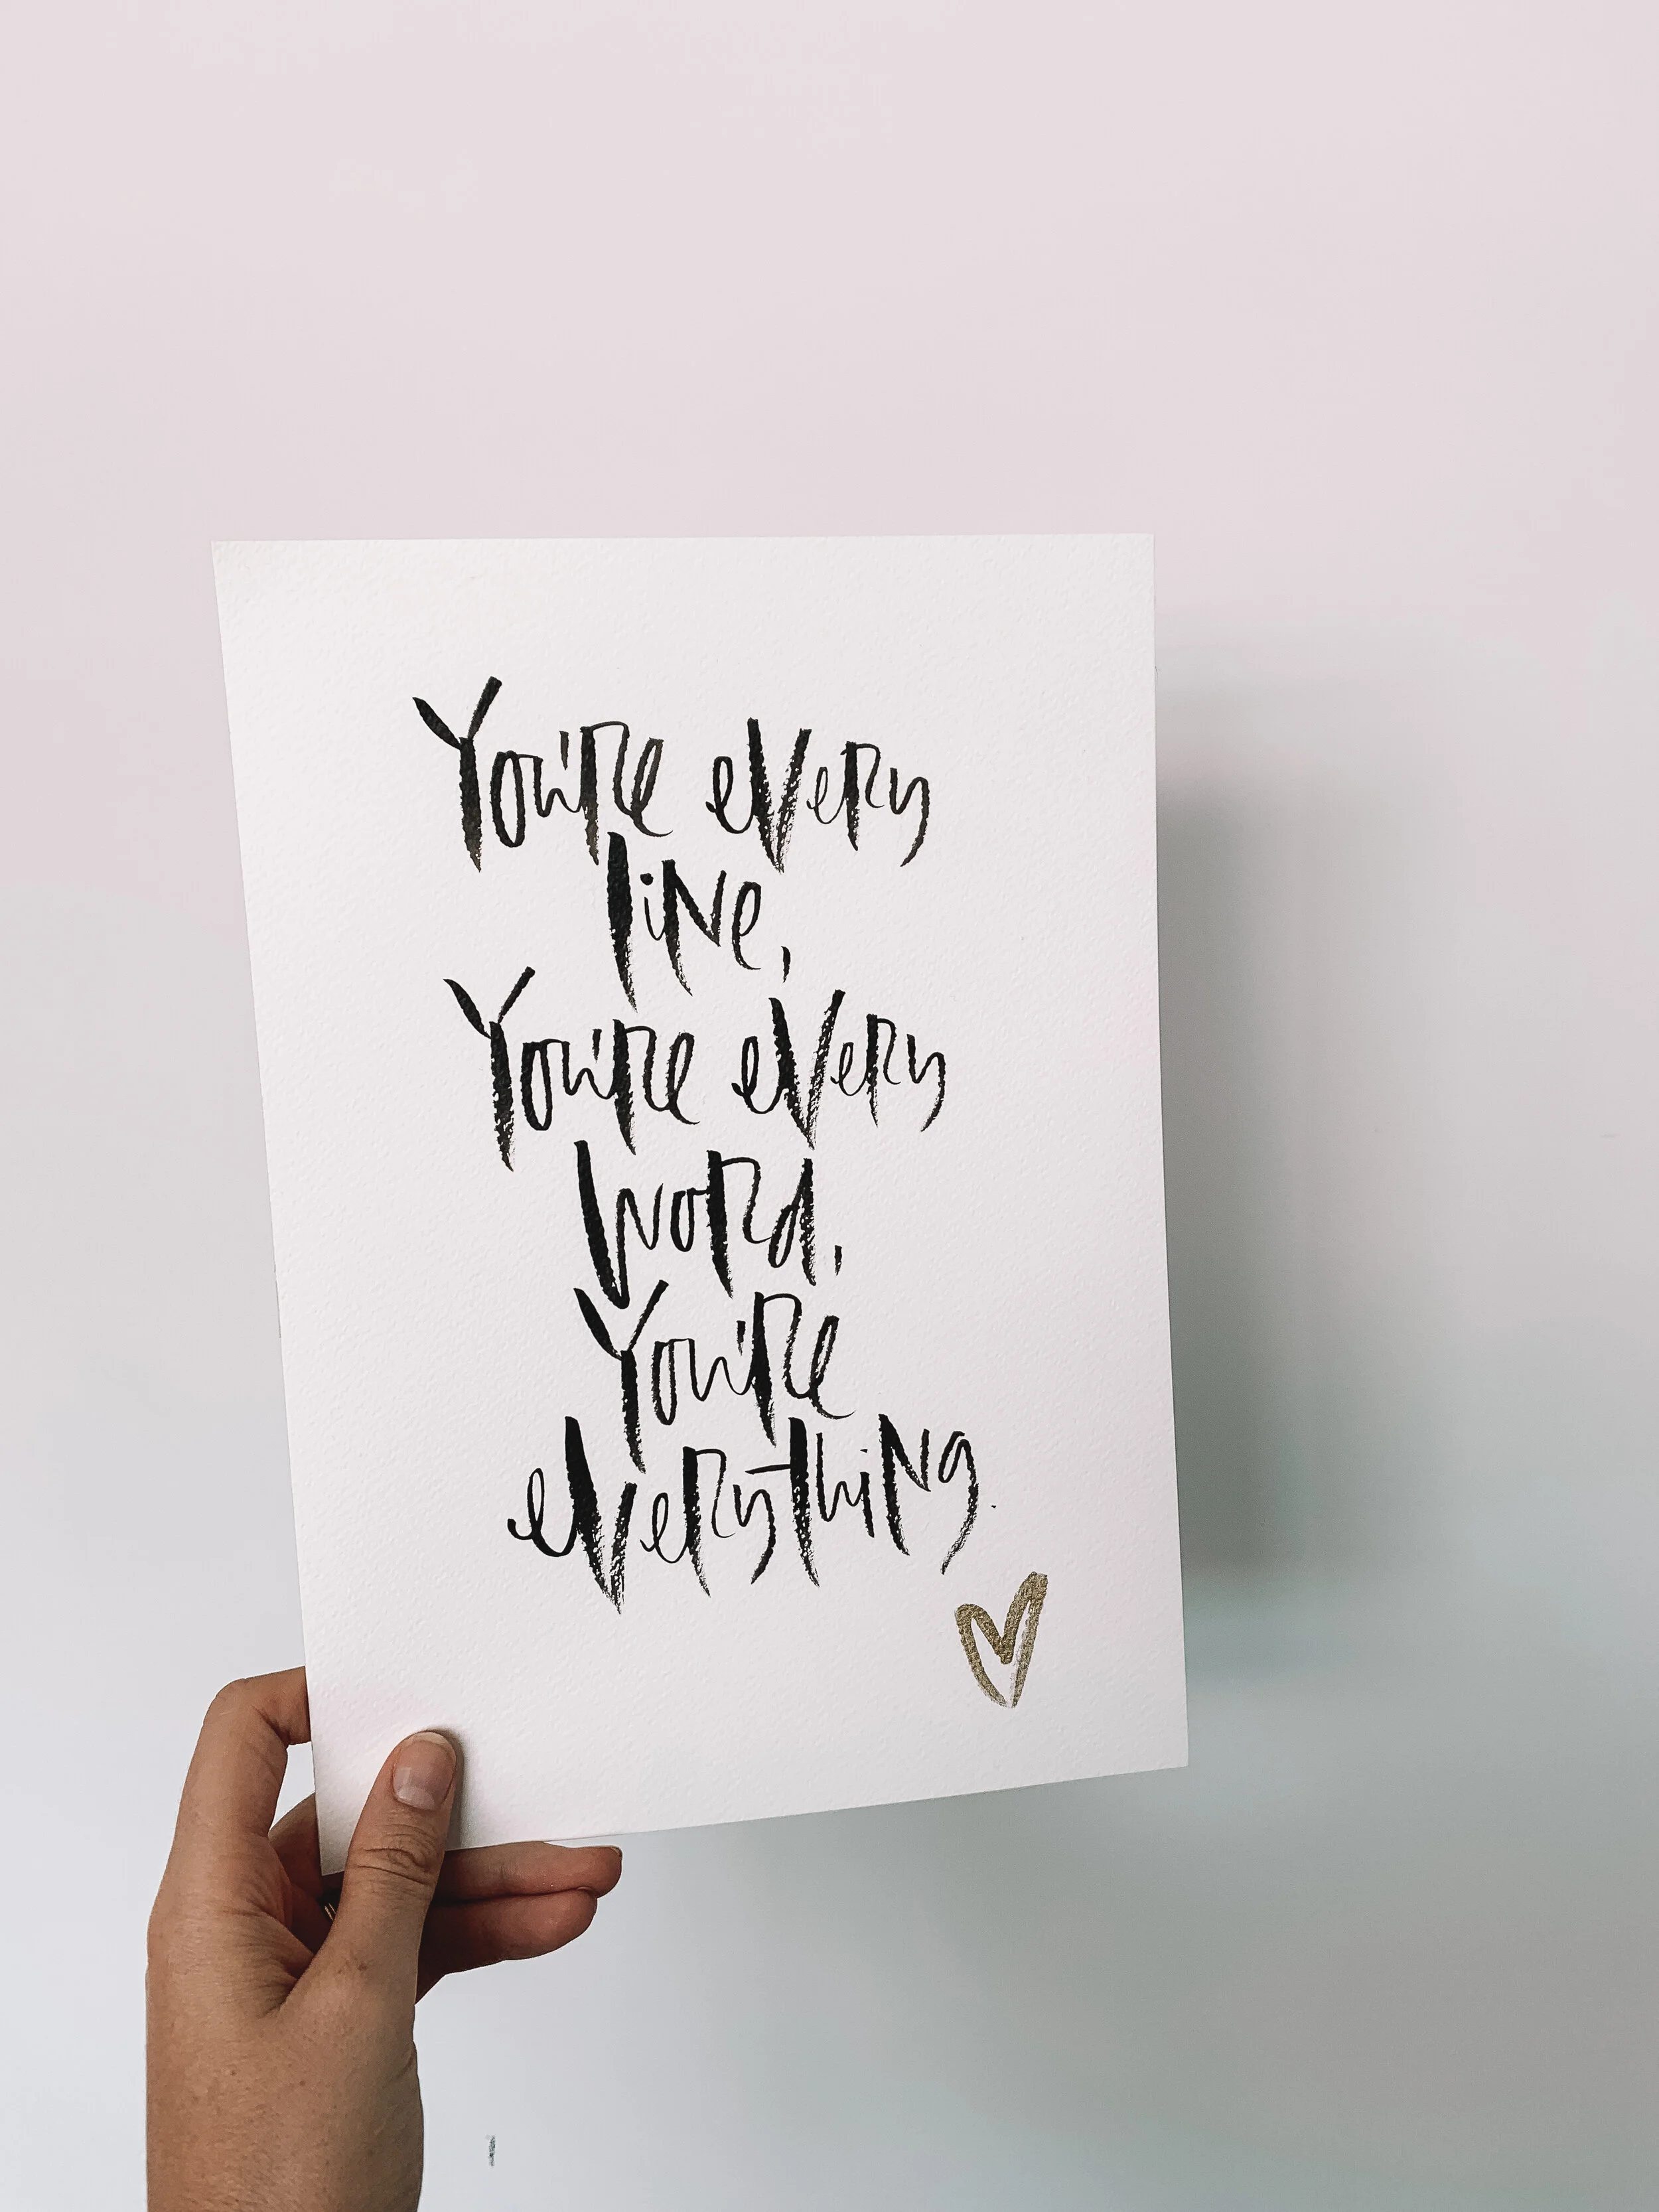 You're every
line,
You're every
word,
You're
everything.